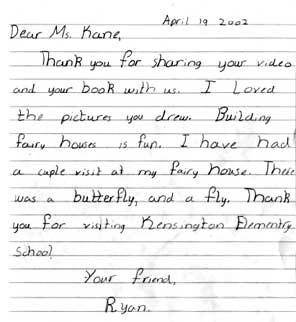 April 19 2002
Dear Ms. Kane,
Thank you for sharing your video
and your book with us. I Loved
the pictures you drew. Building
fairy houses is fun. I have had
a cuple visit at my fairy house. There
was a butterfly, and a fly. Thank
you for visiting Kensington Elementry
School.
Your friend,
Ryan.